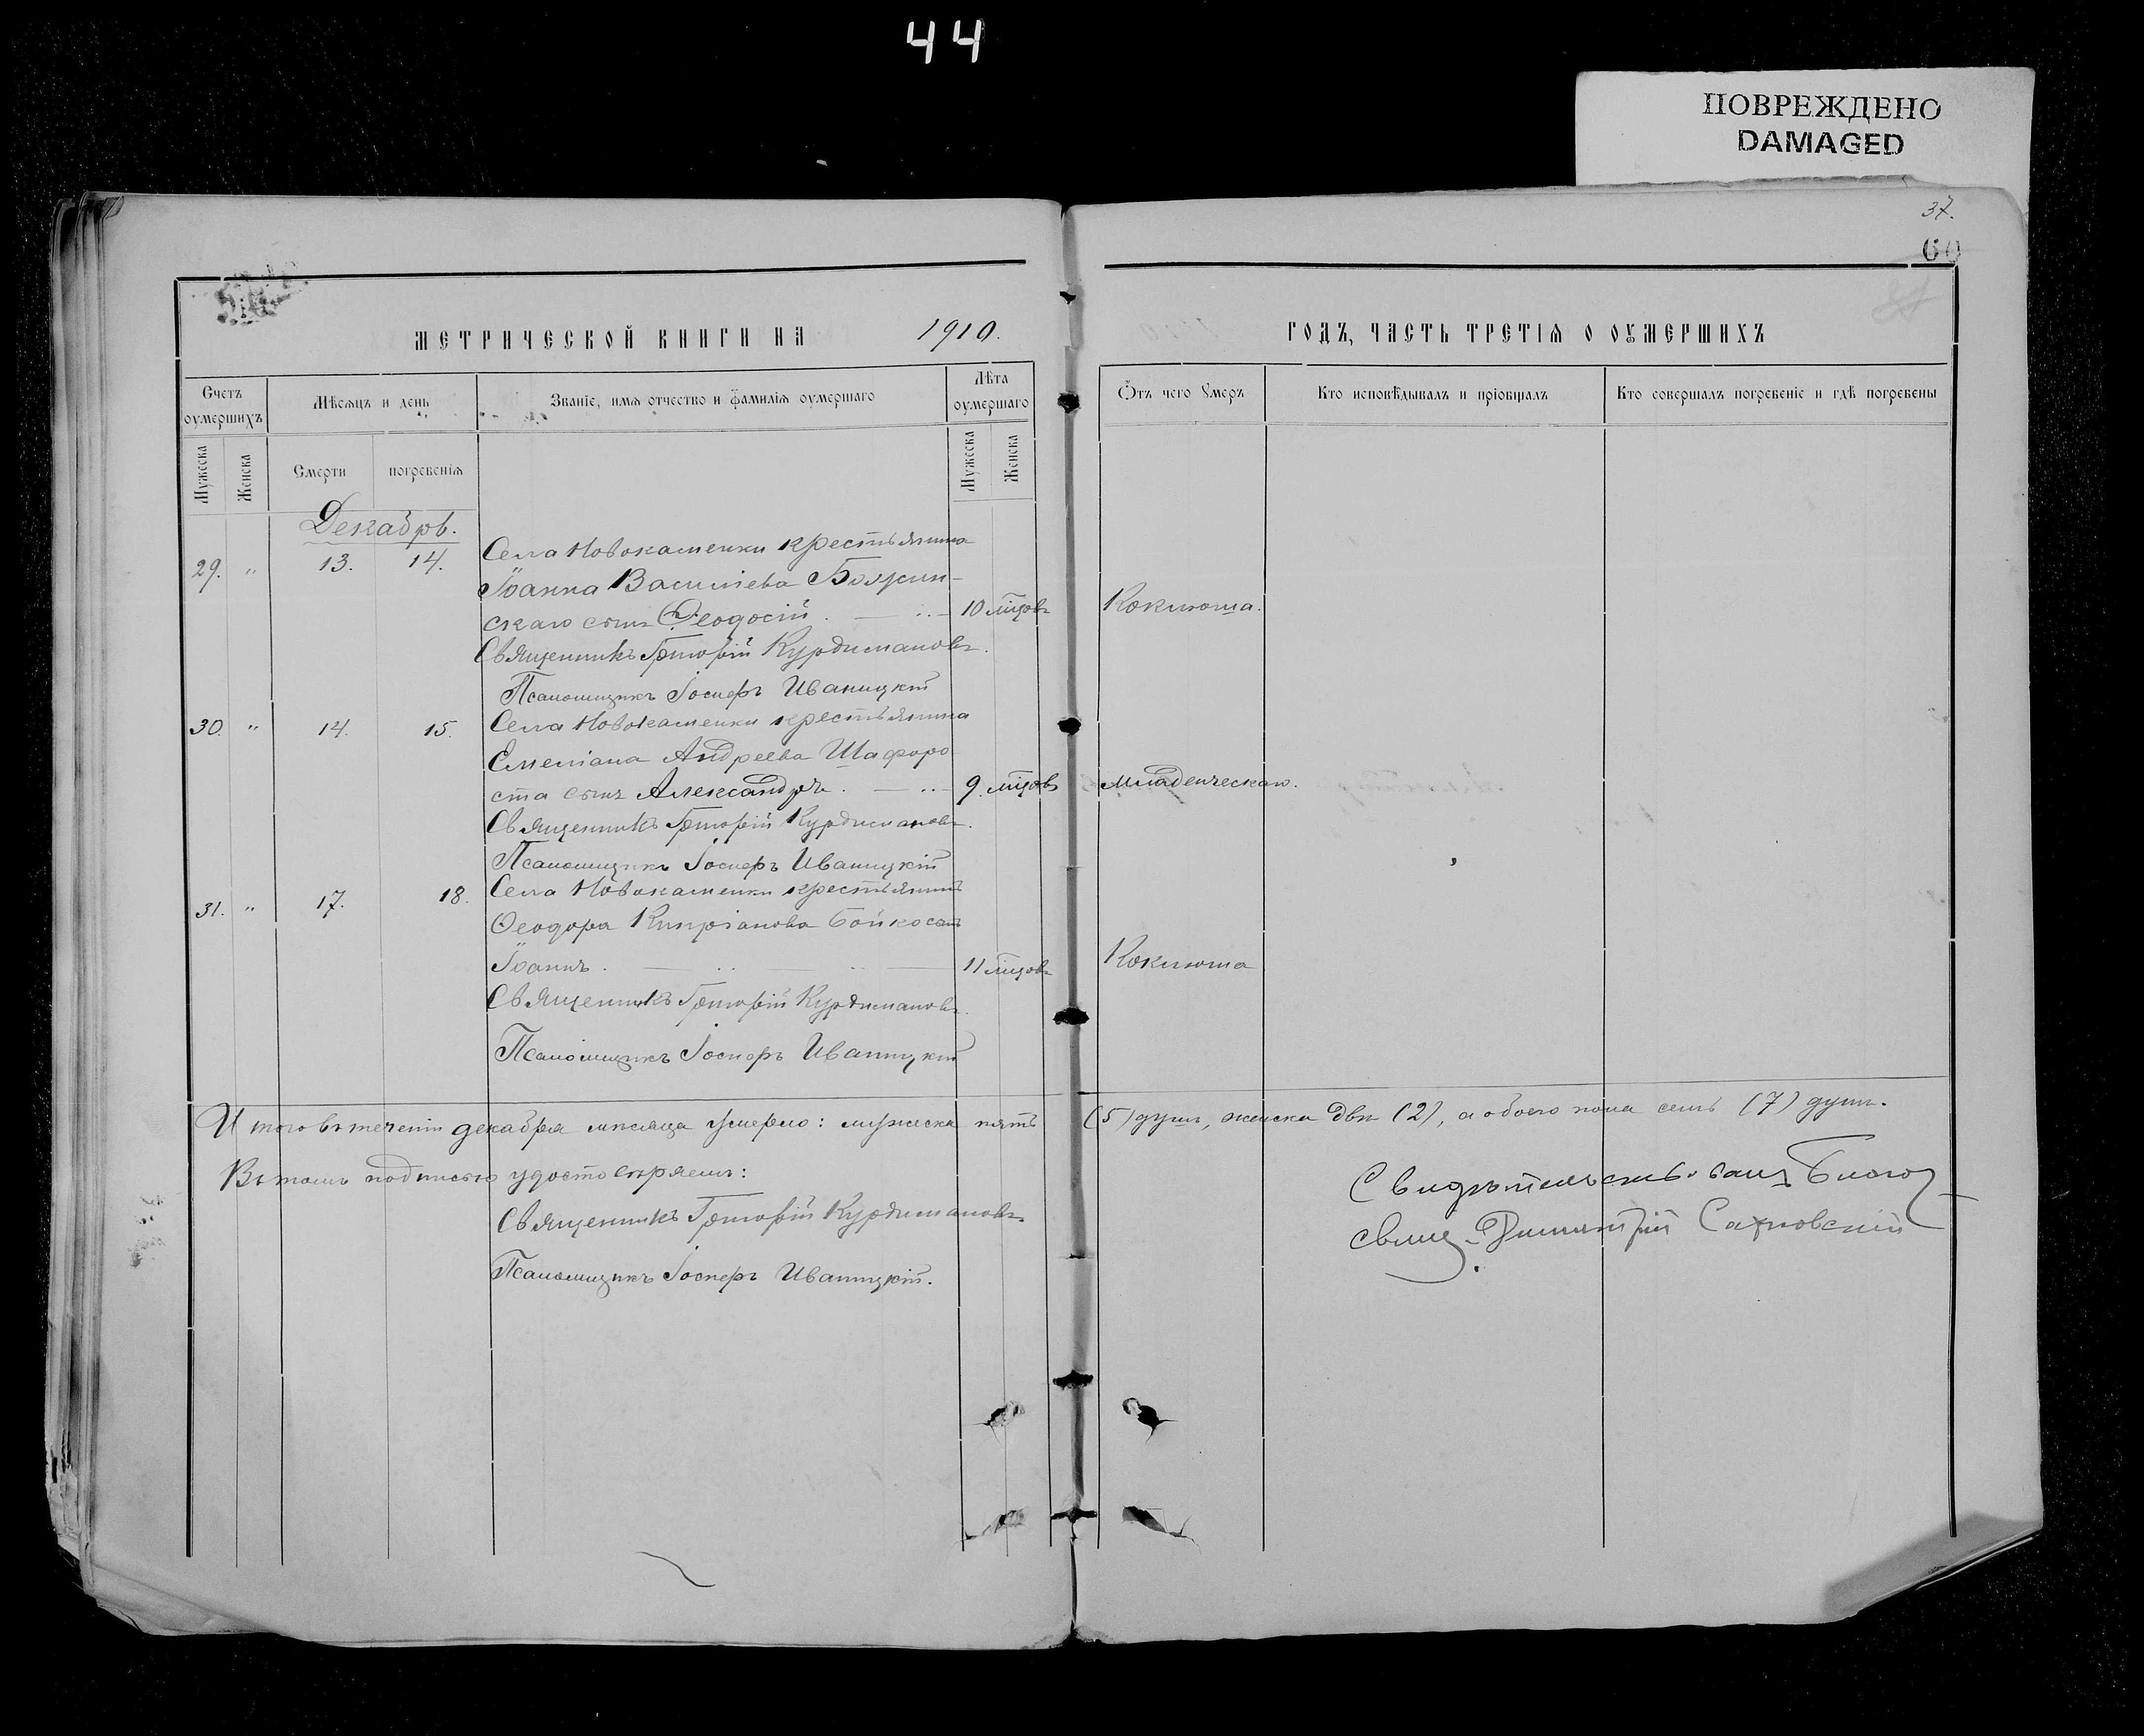 44
ПОВРЕЖДЕНО
DAMAGED
37.
МЕТРИЧЕСКОЙ КНИГИ НА 1910.
ГОДЪ, ЧАСТЬ ТРЕТІЯ О ОУМЕРШИХЪ
Счетъ оумершихъ
Мѣсяцъ и день
Званіе, имя отчество и фамилія оумершаго
Лѣта оумершаго
Отъ чего умеръ
Кто исповѣдывалъ и пріобщалъ
Кто совершалъ погребеніе и гдѣ погребены
Мужеска
Женска
Смерти
погребенія
Мужеска
Женска
Декабрь.
29. " 13. 14. Села Новокаменки крестьянина
Іоанна Василіева Божин-
скаго сынъ Ѳеодосій. 10 мѣцовъ Коклюша.
Священникъ Григорій Курдимановъ.
Псаломщикъ Іосифъ Иваницкій
30. " 14. 15. Села Новокаменки крестьянина
Емеліана Андреева Шафоро
ста сынъ Александръ. 9. мѣцовъ Младенческаго.
Священникъ Григорій Курдимановъ.
Псаломщикъ Іосифъ Иваницкій
31. " 17. 18. Села Новокаменки крестьянина
Ѳеодора Кипріанова Бойко сынъ
Іоаннъ. 11 мѣцовъ Коклюша
Священникъ Григорій Курдимановъ.
Псаломщикъ Іосифъ Иваницкій
Итого въ теченіи декабря мѣсяца умерло: мужеска пять (5) душъ, женска двѣ (2), а обоего пола семь (7) душъ.
Въ томъ подписью удостовѣряемъ:
Священникъ Григорій Курдимановъ.
Псаломщикъ Іосифъ Иваницкій.
Свидѣтельствовалъ Благоч
свящ. Димитрій Сахновскій